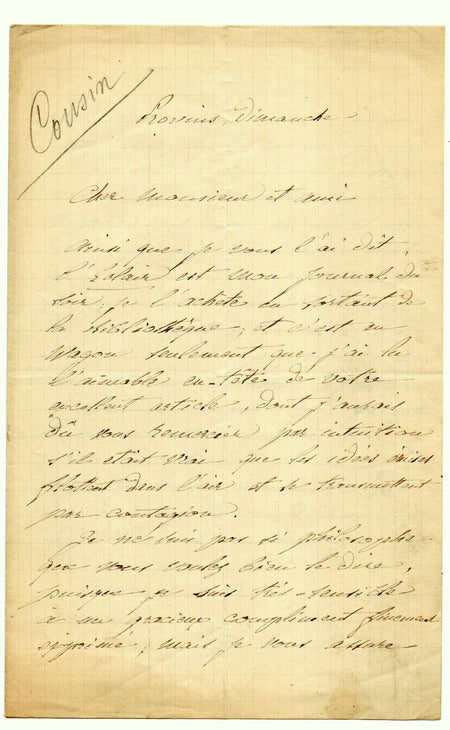 Cousin
Provins, Dimanche
Cher Monsieur et ami
Ainsi que je vous l'ai dit,
l'Eclair est mon journal du
soir; je l'achète en sortant de
la Bibliothèque; et c'est en
Wagon seulement que j'ai lu
l'aimable en-tête de votre
excellent article, dont j'aurais
dû vous remercier par intuition
s'il était vrai que les idées
flottent dans l'air et se transmettent
par contagion.
Je ne suis pas si philosophe
que vous voulez bien le dire,
puisque je suis très-sensible
à un gracieux compliment finement
exprimé; mais je vous assure